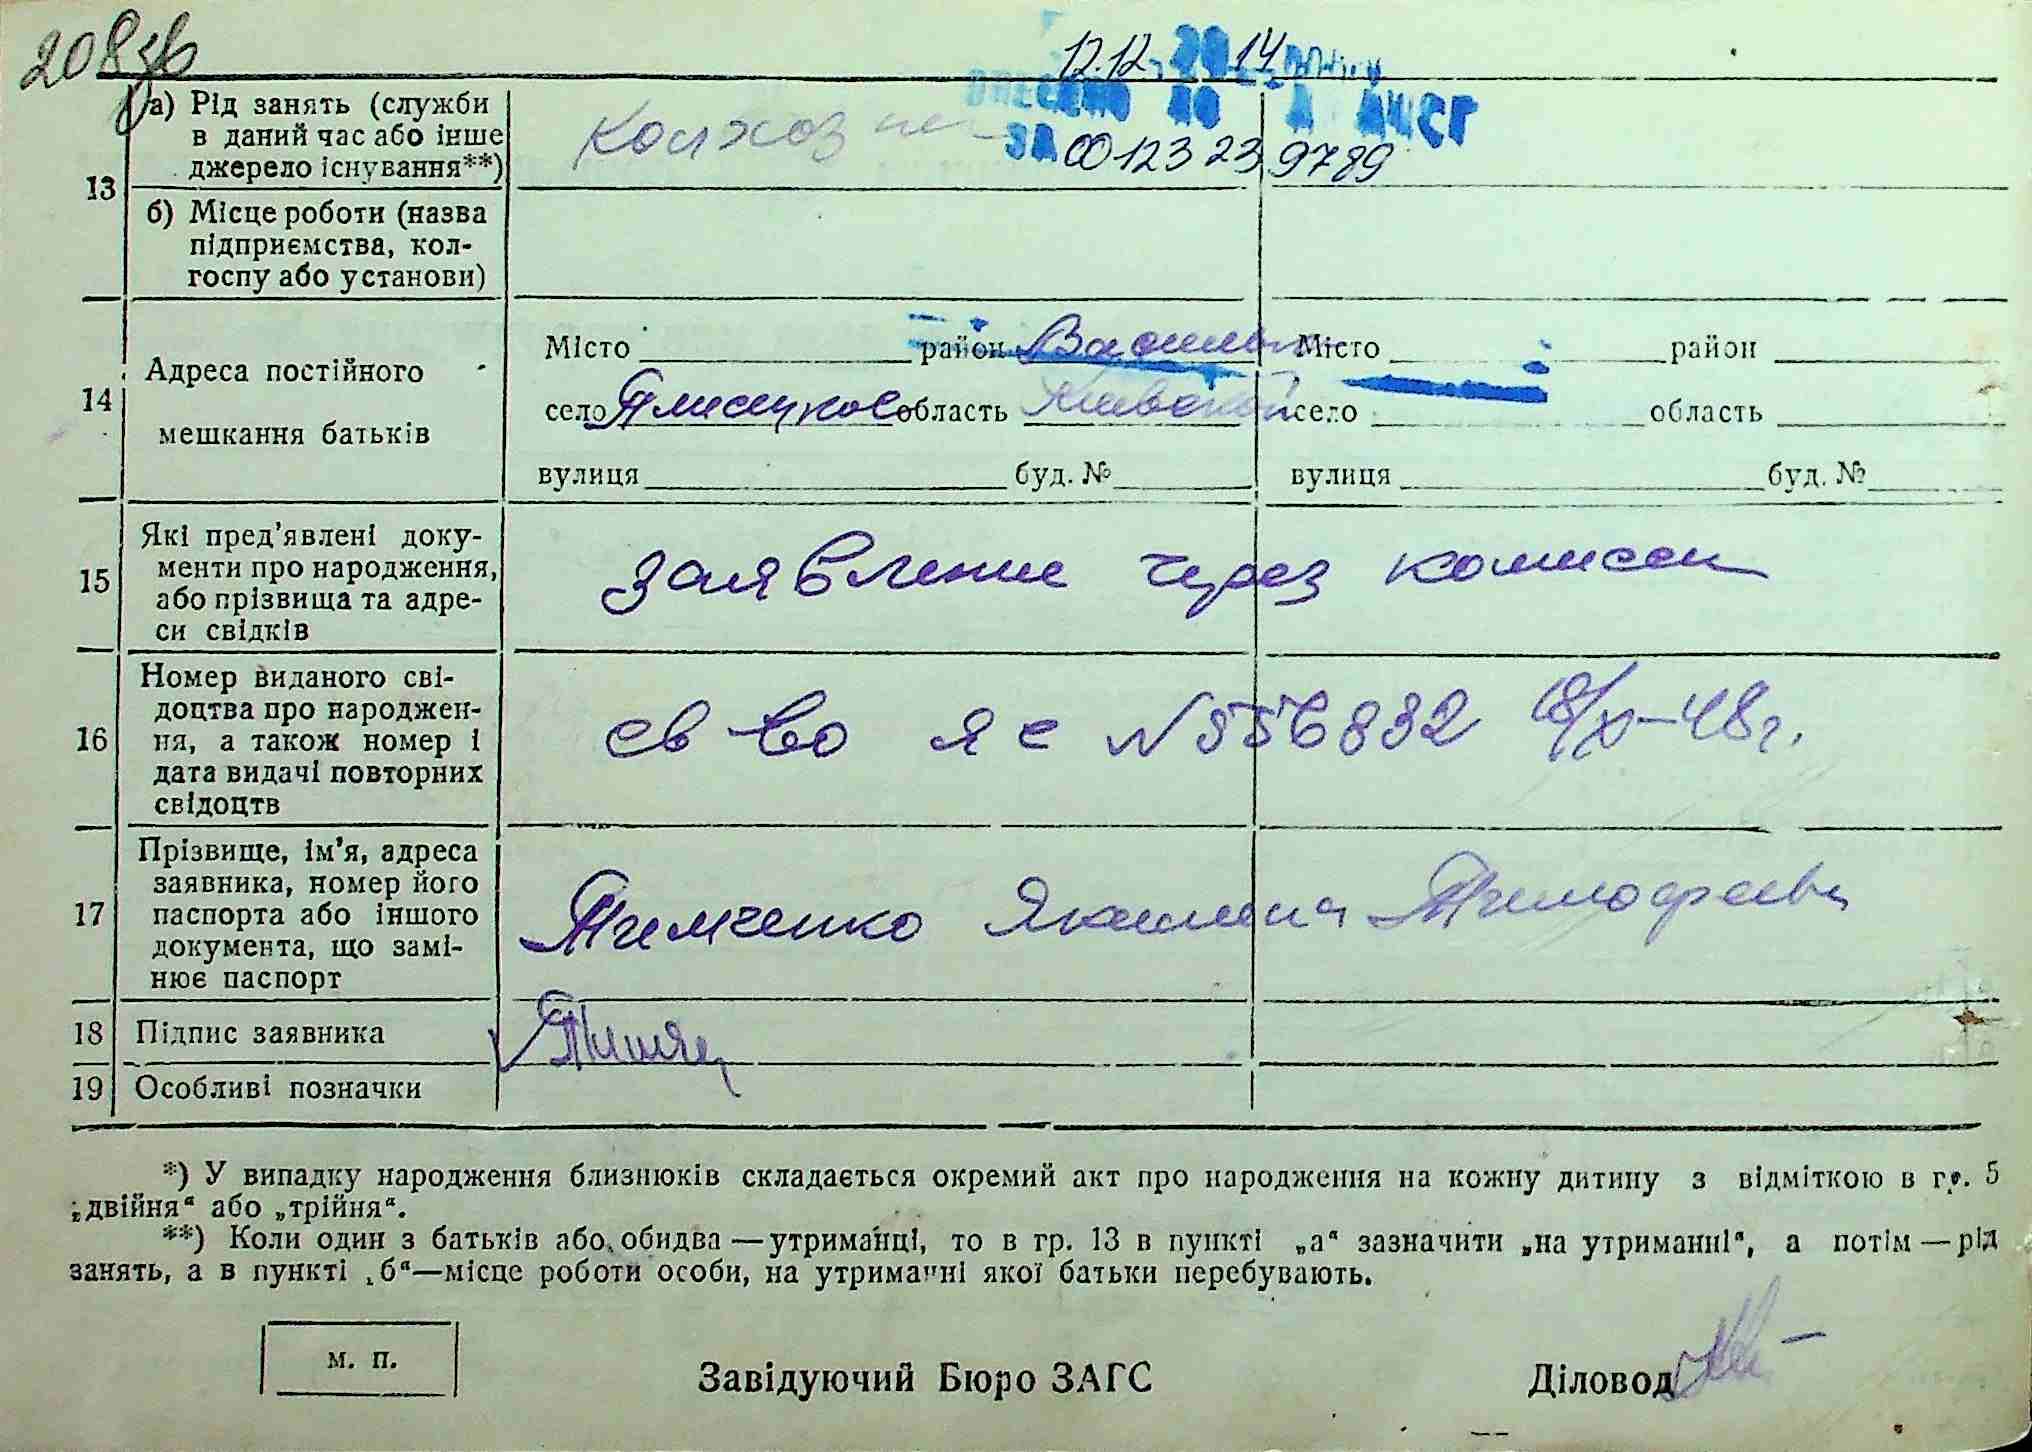 208зв
12.12. 2014 року
ВНЕСЕНО ДО ДРАЦСГ
ЗА 00123239789
13
а) Рід занять (служби
в даний час або інше
джерело існування**)
Колхоз
б) Місце роботи (назва
підприємства, кол-
госпу або установи)
14
Адреса постійного
мешкання батьків
Місто район Васильк
село область Киевской
вулиця буд. №
Місто район
село область
вулиця буд. №
15
Які пред’явлені доку-
менти про народження,
або прізвища та адре-
си свідків
заявление через комисси
16
Номер виданого сві-
доцтва про народжен-
ня, а також номер і
дата видачі повторних
свідоцтв
св во яс №556832 18/XI-48г.
17
Прізвище, ім’я, адреса
заявника, номер його
паспорта або іншого
документа, що замі-
нює паспорт
Тимченко Якилина Тимофеевн
18
Підпис заявника
19
Особливі позначки
*) У випадку народження близнюків складається окремий акт про народження на кожну дитину з відміткою в гр. 5
„двійня“ або „трійня“.
**) Коли один з батьків або обидва — утриманці, то в гр. 13 в пункті „а“ зазначити „на утриманні“, а потім — рід
занять, а в пункті „б“—місце роботи особи, на утриманні якої батьки перебувають.
м. п.
Завідуючий Бюро ЗАГС
Діловод